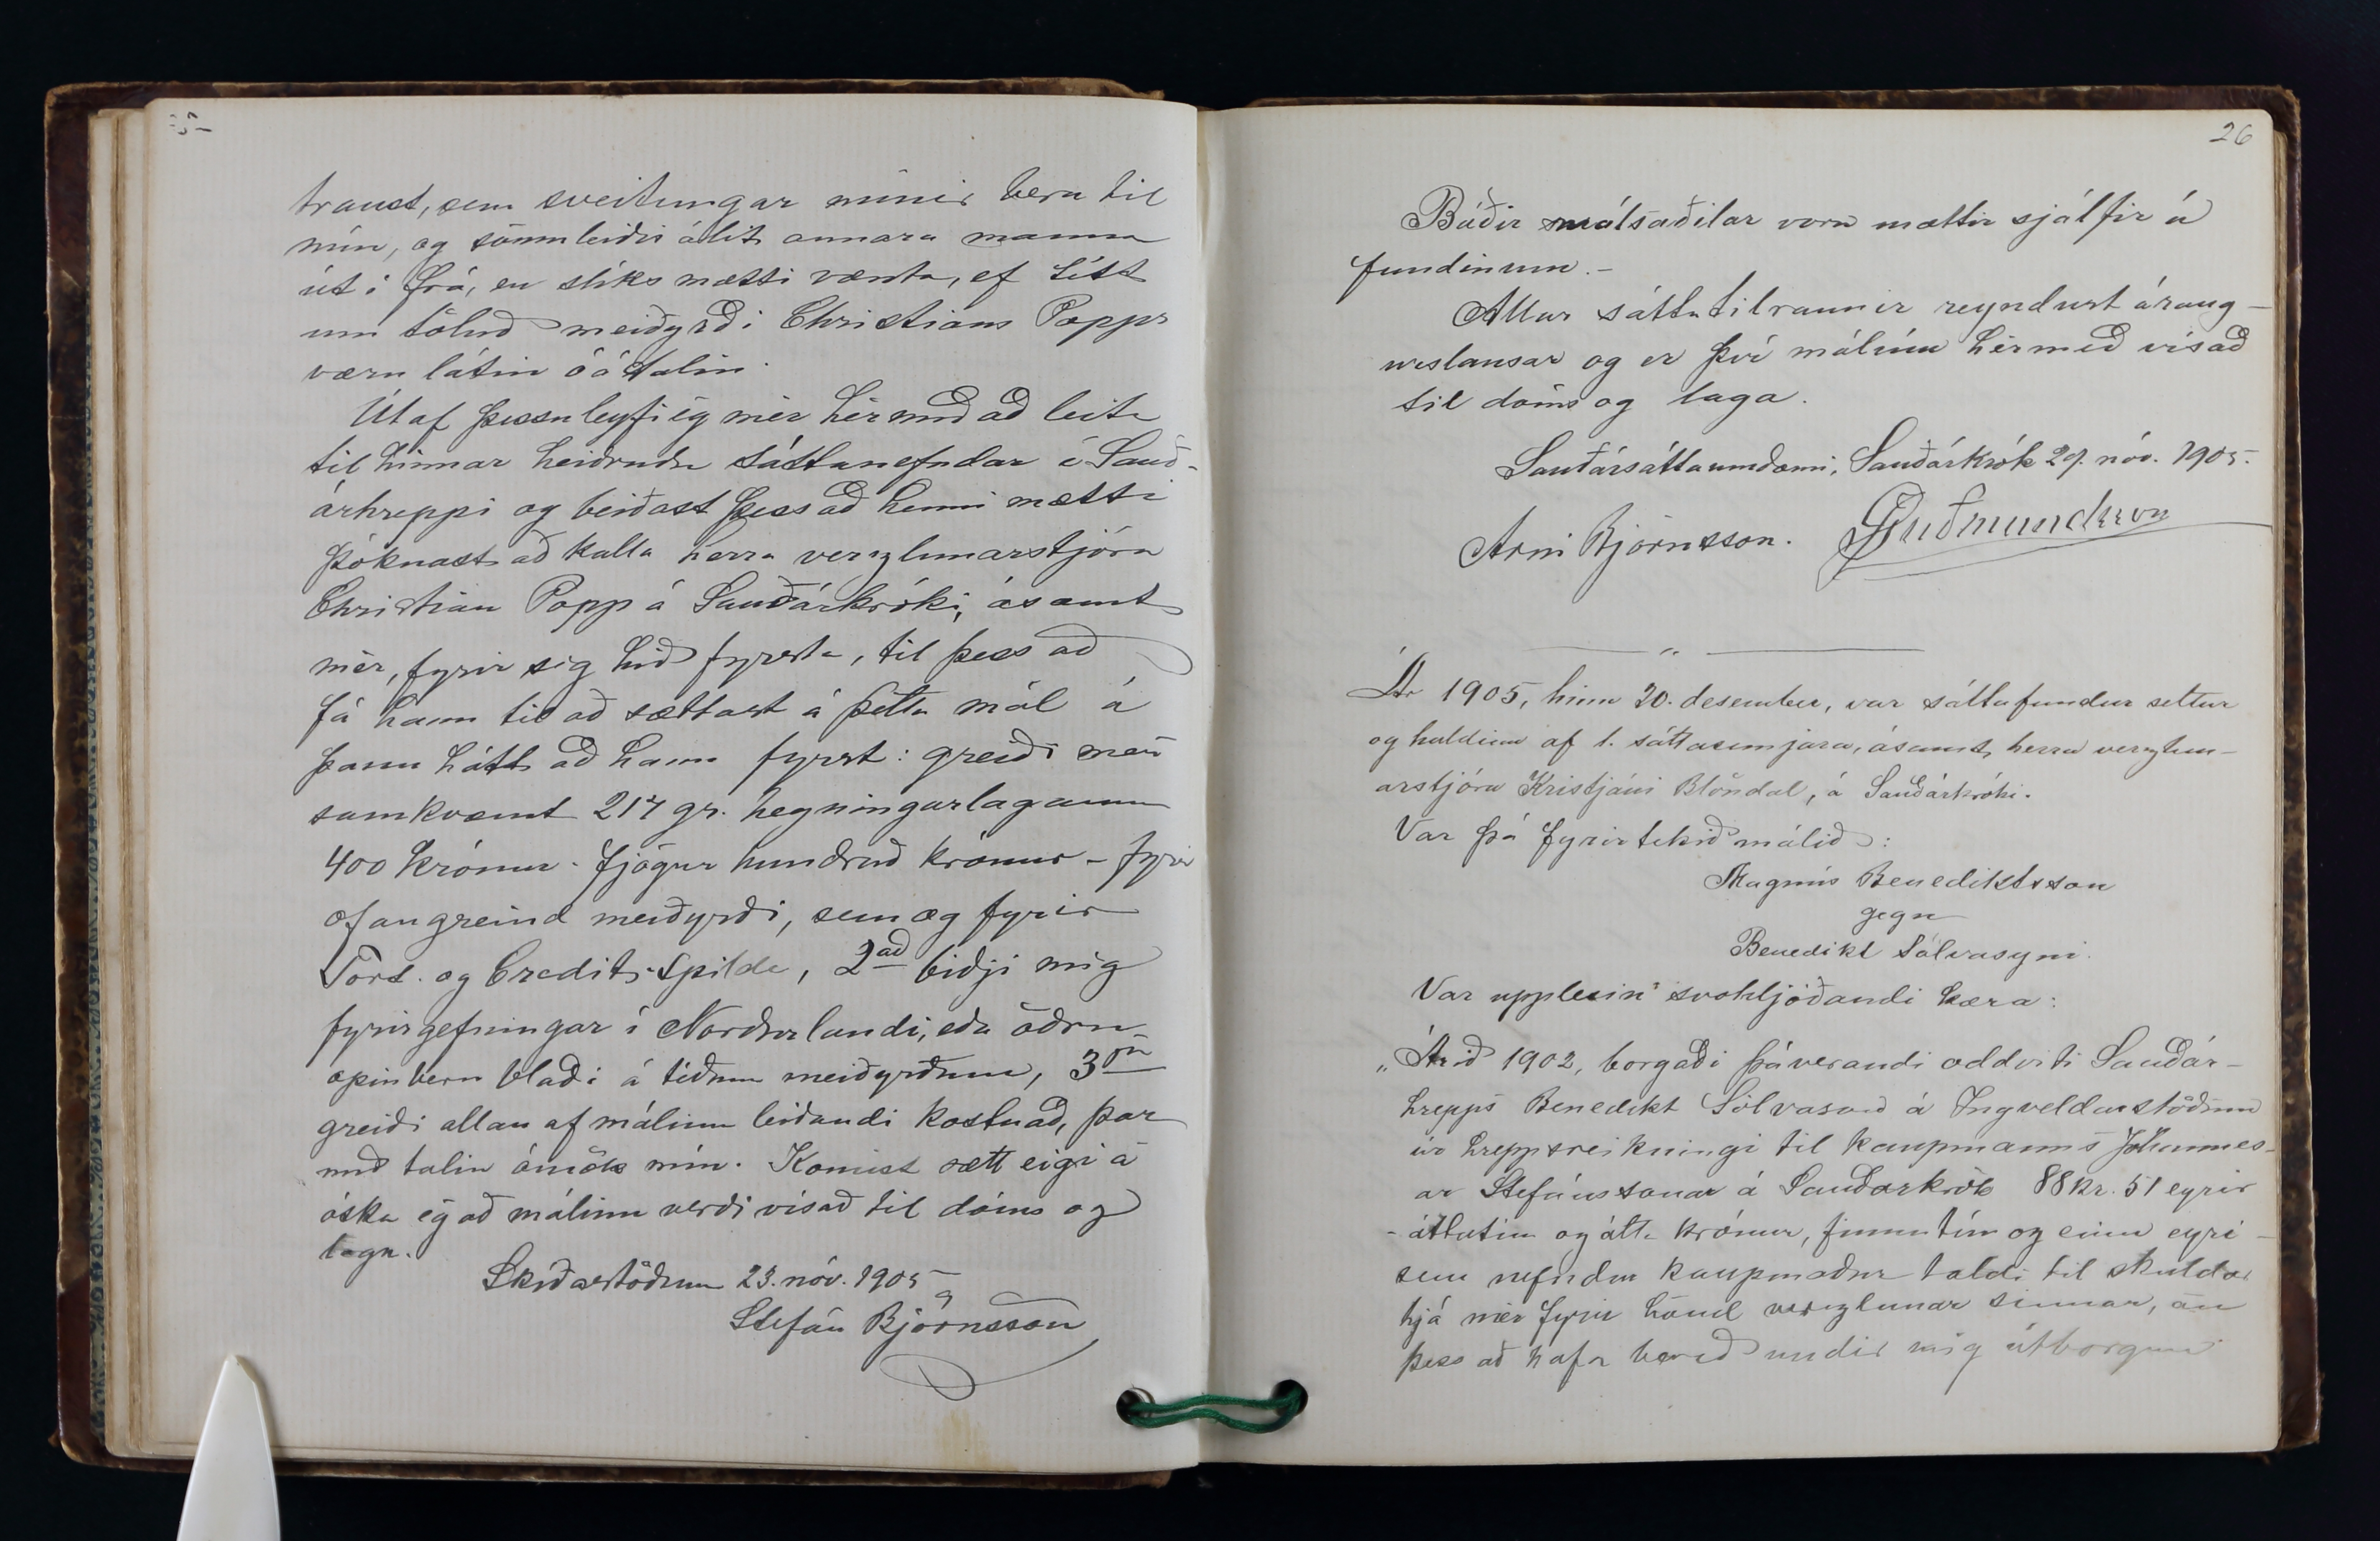 traust, sem sveitungar mínir bera til
mín, og sömuleiðis álit annara manna
út í frá, en slíks mætti vænta, ef títt
um töluð meiðyrði Christians Popps
væru látin óátalin.
Út af þessu leyfi ég mér hér með að leita
til hinnar heiðruðu sáttanefndar í Sauð-
árhreppi og beiðast þess að henni mætti
þóknast að kalla herra verzlunarstjóra
Christian Popp á Sauðárkróki, ásamt
mér, fyrir sig hið fyrsta, til þess að
fá hann til að sættast á þetta mál á
þann hátt að hann fyrst: greiði mér
samkvæmt 217 gr. hegningarlaganna
400 krónur - fjögur hundruð krónur - fyrir
ofangreind meiðyrði, sem og fyrir
Tort. og Credit-Spilde, 2að biðji mig
fyrirgefningar í Norðurlandi, eða öðru
opinberu blaði á téðum meiðyrðum, 3ja
greiði allan af málinu leiðandi kostnað, þar
með talin ómök mín. Komist sætt eigi á
óska ég að málinu verði vísað til dóms og
laga.
Skíðastöðum 23. nóv. 1905
Stefán Björnsson
26
Báðir málsaðilar voru mættir sjálfir á
fundinum.-
Allar sáttatilraunir reyndust árang-
urslausar og er því málinu hérmeð vísað
til dóms og laga.
Sauðársáttaumdæmi, Sauðárkrók 29. nóv. 1905.
Árni Björnsson. GGuðmundsson
Ár 1905, hinn 20. desember, var sáttafundur settur
og haldinn af 1. sáttasemjara, ásamt herra verzlun-
arstjóra Kristjáni Blöndal, á Sauðárkróki.
Var þá fyrirtekið málið:
Magnús Benediktsson
gegn
Benedikt Sölvasyni.
Var upplesin svohljóðandi kæra:
„Árið 1902, borgaði þáverandi oddviti Sauðár-
hrepps Benedikt Sölvason á Ingveldarstöðum
úr hreppsreikningi til kaupmanns Jóhannes-
ar Stefánssonar á Sauðárkrók 88 kr. 51 eyrir
- áttatíu og átta krónur, fimmtíu og einn eyri -
sem nefndur kaupmaður taldi til skuldar
hjá mér fyrir hönd verzlunar sinnar, án
þess að hafa borið undir mig útborgun